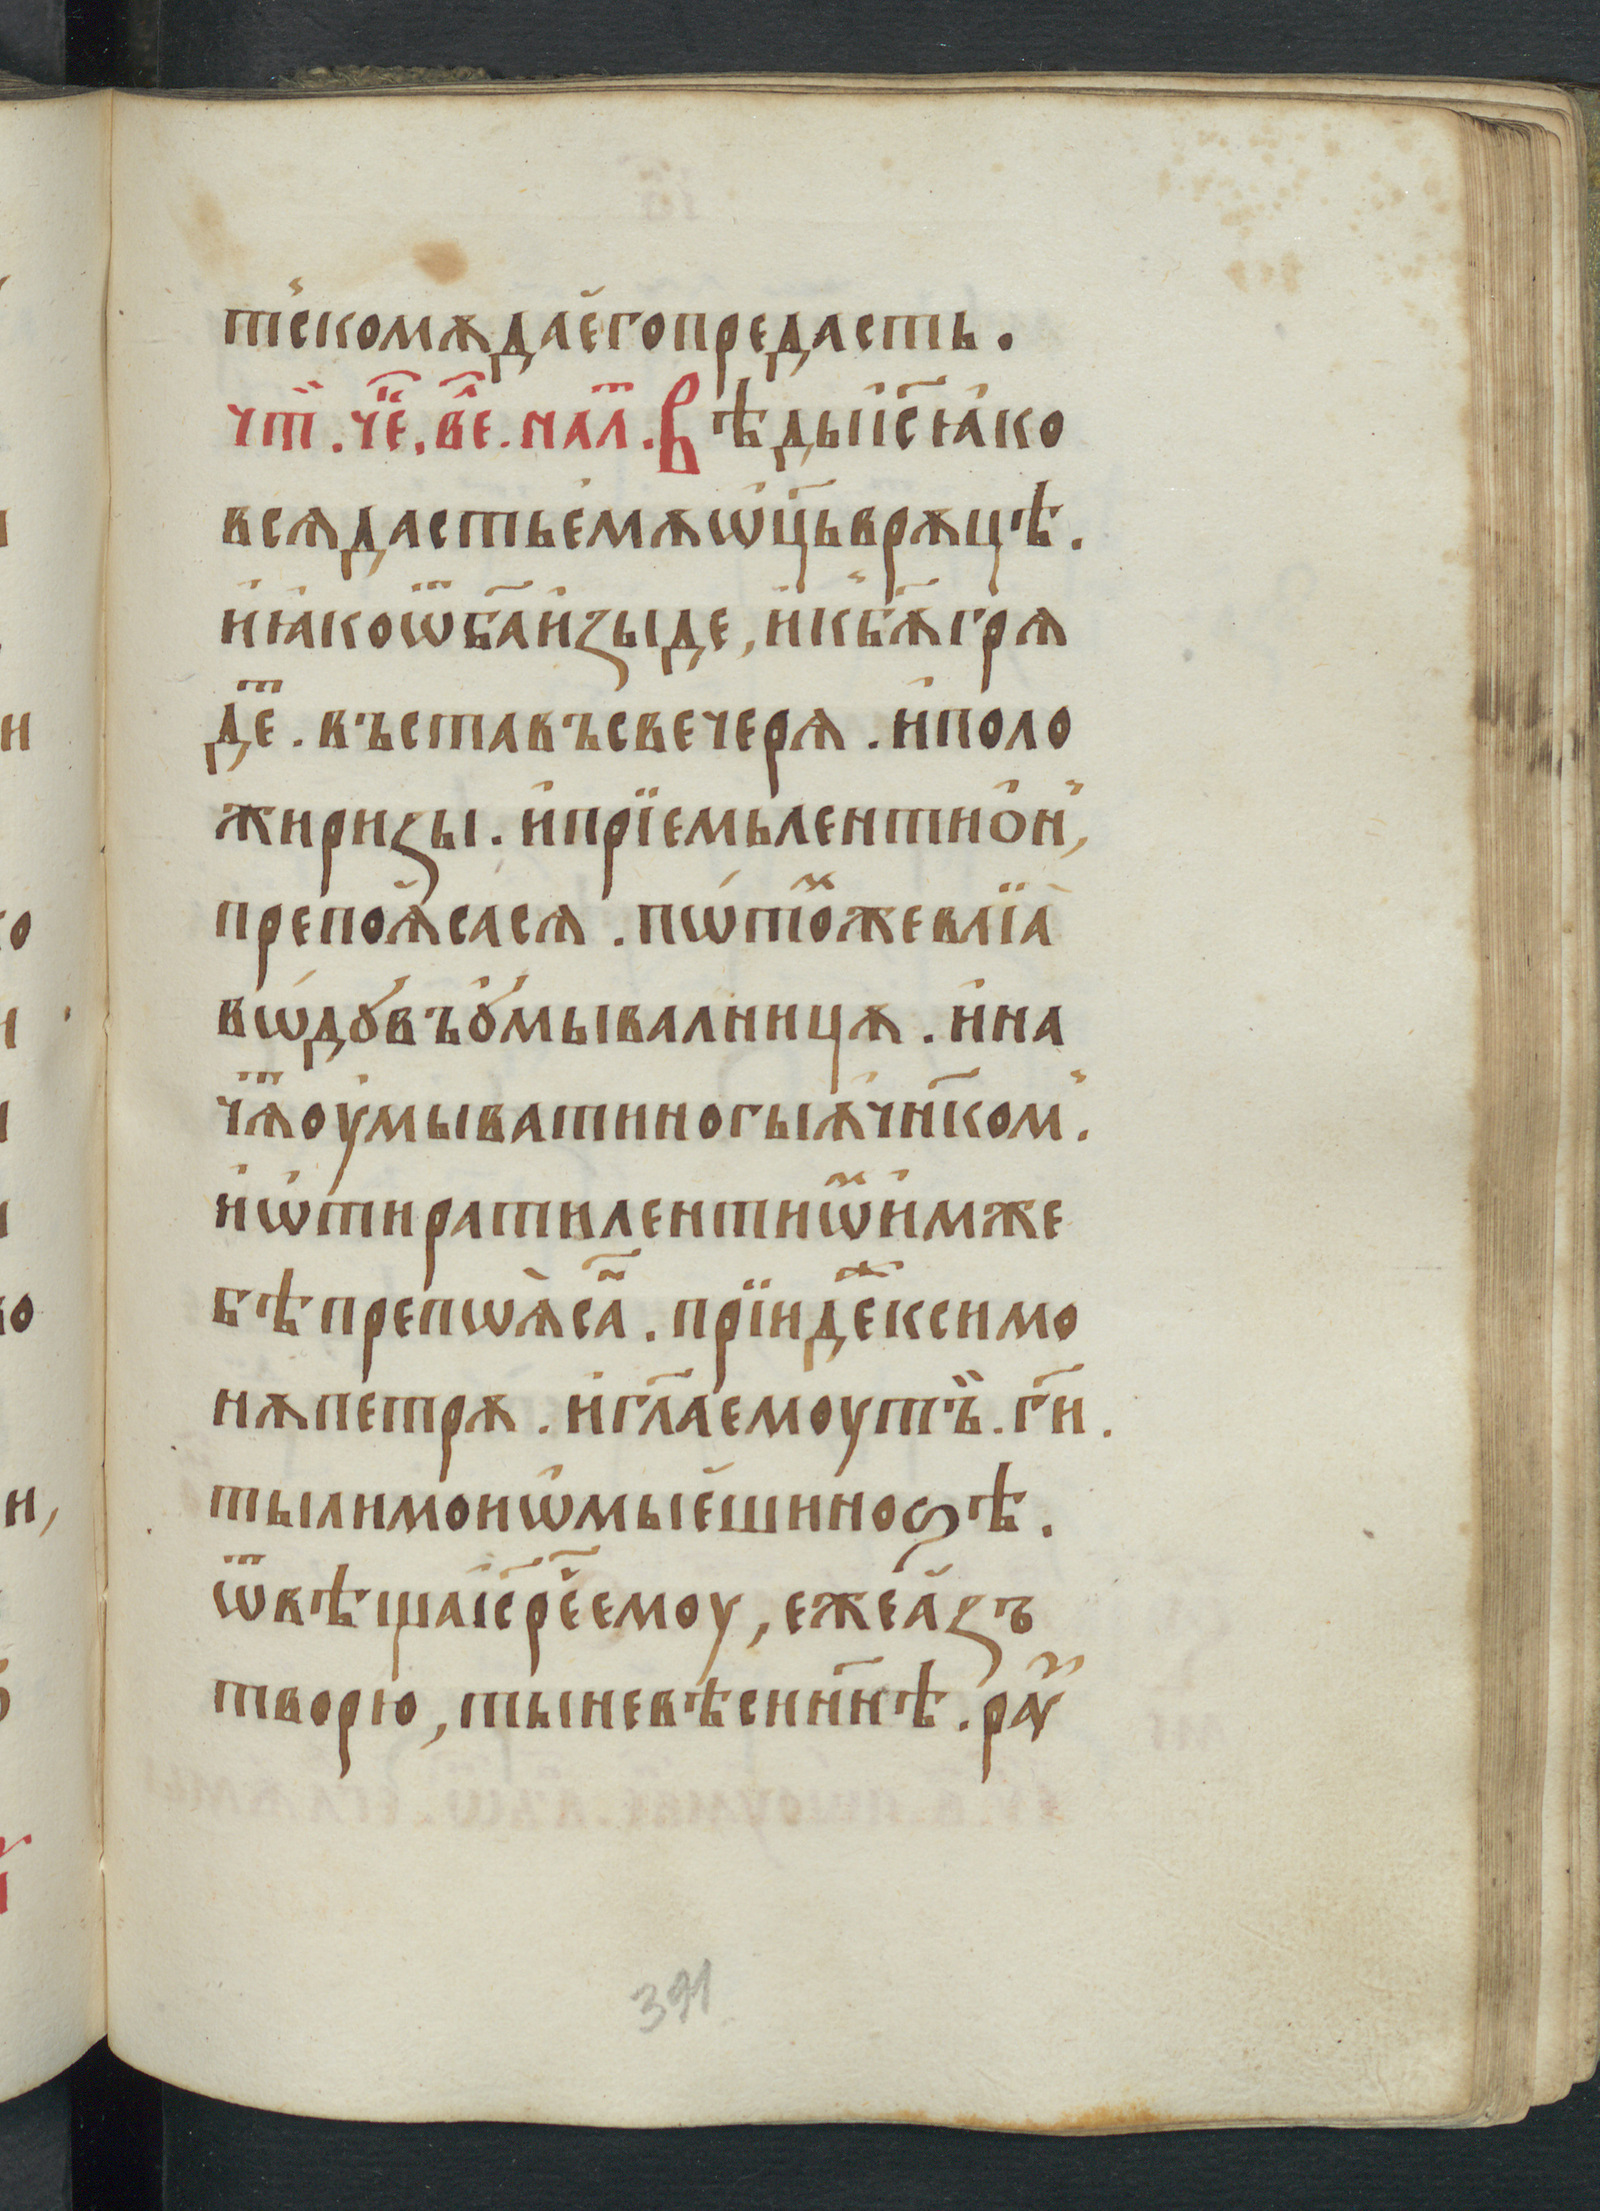 ті҆скомѫ да е҆го предасть .
чт҃ . че҃ . ве҃ . нач҃л . Вѣды і҆с҃ ꙗ҆ко
всѧ дасть е҆мѫ ѡ҆ц҃ь врѫцѣ .
и҆ ꙗ҆ко ѿ б҃а и҆зыде , и҆ кб҃ѫ грѧ
дет҃ . въставъ свечерѧ . и҆ поло
жи ризы . и҆ прїемь лентио҆н҆ ,
препоѧ҆сасѧ . пѡ́тоⷨже влїꙗ̀
вѡ́дꙋ въ ꙋ҆мывалницѫ . и҆ на
чѧⷮ оу҆мывати ногы ѫ҆чн҃ком҆ .
и҆ ѡ҆тирати лентиѡⷨ и҆мже
бѣ препѡѧ̀саⷩ҇ . прїидеⷤ ксимо
нѫ петрѫ . и҆ гл҃а емоу тъ̏ . гн҃ .
ты ли мои ѡ҆мые҆ши ноѕѣ .
ѿвѣща і҆с҃ ре҃ емоу , еже а҆зъ
творю , ты невѣси нн҃ѣ . раꙁⷹ
391